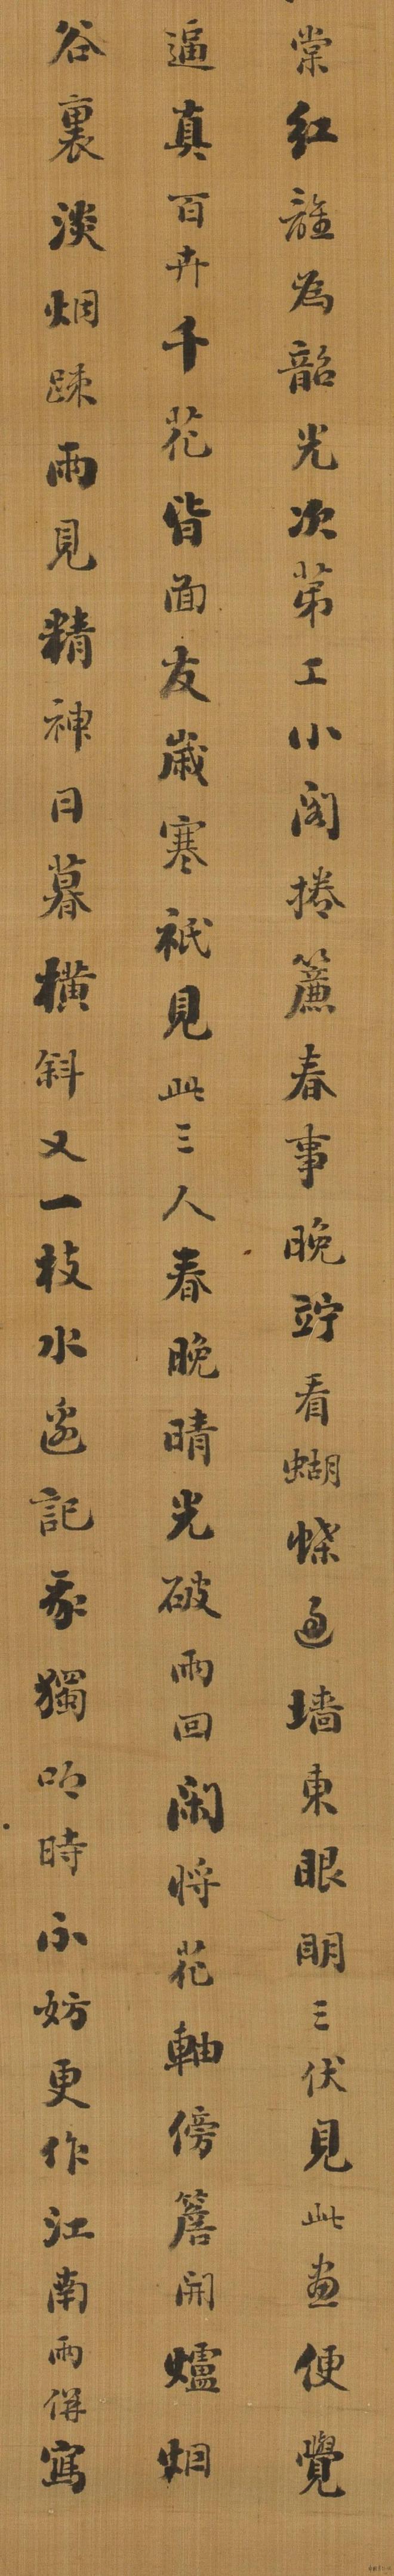 棠红誰為韶光次苐工小阁捲簾春事晚竚看蝴蝶過墙東眼明三伏見此畫便覺
逼真百卉千花皆面友歲寒祇見此三人春晚晴光破雨回閑將花軸傍簷開爐烟
谷裏淡烟踈雨見精神日暮橫斜又一枝水邊記我獨吟時不妨更作江南雨併寫